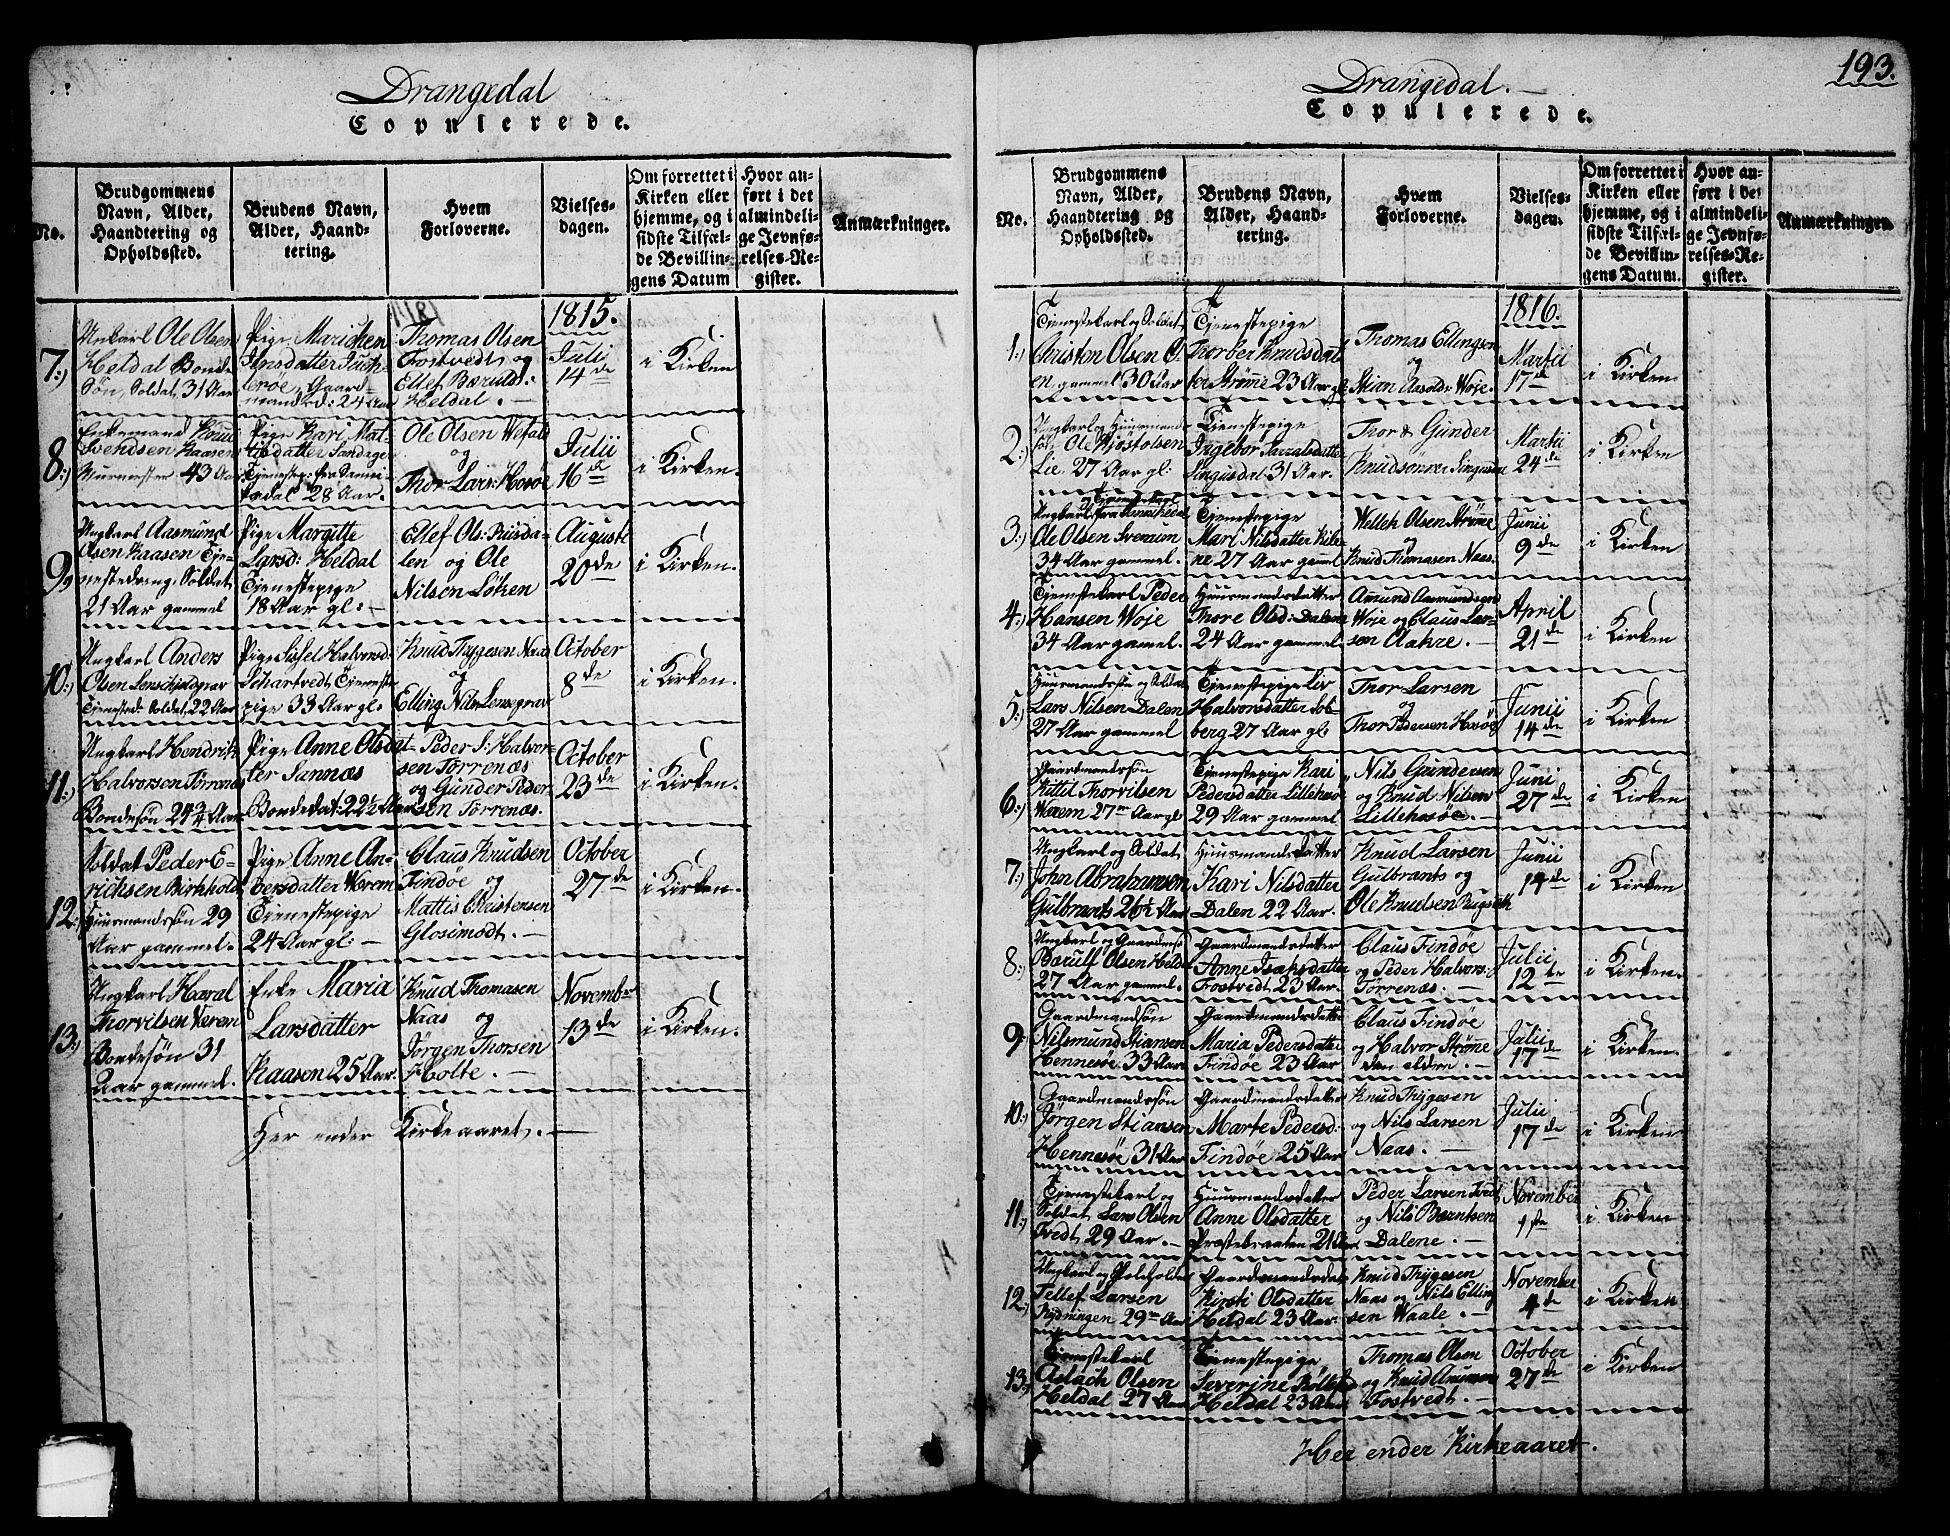 Drangedal
Copulerede.
No.
Brudgommens Navn, Alder, Haandtering og Opholdssted.
Brudens Navn, Alder, Haandtering.
Hvem Forloverne.
Vielses-dagen.
Om forrettet i Kirken eller hjemme, og i sidste Tilfælde Bevillingens Datum
Hvor anført i det almindelige Jevnførelses-Register.
Anmærkninger.
1815.
7:)
Ungkarl Ole Olsen
Heldal Bonde
Søn, Soldat, 31 Aar
Pige Marichen
Gaard-
24 Aar
Thomas Olsen
Fostvedt og
Ellef Berulfs:
Heldal. —
Julii
14de
i Kirken
8:)
Enkemand Knud
Svendsen Kaasen
43 Aar
Pige Kari Mat-
tisdatter Sandager
28 Aar.
Ole Olsen Wefald
og
Thor Lars: Hosøe
Julii
16de
i Kirken.
9:)
Ungkarl Aasmund
Olsen Kaasen Tje-
nestedreng, Soldat
21 Aar gammel
Pige Margitte
Larsd: Heldal
Tjenestepige
18 Aar gl: —
Ellef Ols: Riisda-
len og Ole
Nilsen Løhen
Augusti
20de
i Kirken.
10:)
Ungkarl Anders
Olsen
Tjenested: Soldat, 22 Aar
Pige Sissel Halvorsd:
Schartvedt Tjeneste
pige 33 Aar gl:
Knud Thygesen Naas
og
Elling Nils:
October
8de
i Kirken.
11:)
Ungkarl Hendrik
Halvorsen Torrenæs
Bondesøn 24¾ Aar
Pige Anne Olsdat-
ter Sannæs
Bondedat: 22½ Aar
Peder S: Halvor-
sen Torrenæs
og Gunder Peder-
sen Torrenæs.
October
23de
i Kirken.
12:)
Soldat Peder E-
richsen Birkhold
Huusmandsøn 29
Aar gammel.
Pige Anne An-
dersdatter Worem
Tjenestepige
24 Aar gl: —
Claus Knudsen
Findøe og
Mattis Christensen
Glosimodt. —
October
27de
i Kirken.
13:)
Ungkarl Haral
Thorvilsen Verem
Bondesøn 31
Aar gammel.
Enke Maria
Larsdatter
Kaasen 25 Aar.
Knud Thomasen
Naas og
Jørgen Thorsen
Holte. —
Novembr
13de
i Kirken.
Her ender Kirkeaaret. —
193.
Drangedal. —
Copulerede.
No.
Brudgommens Navn, Alder, Haandtering og Opholdssted.
Brudens Navn, Alder, Haandtering.
Hvem Forloverne.
Vielses-dagen.
Om forrettet i Kirken eller hjemme, og i sidste Tilfælde Bevillingens Datum.
Hvor anført i det almindelige Jevnførelses-Register.
Anmærkninger.
1816.
1:)
Tjenestekarl og Soldat
Christen Olsen
gammel 30 Aar
Tjenestepige
Thorber Knudsdat-
ter Strøme 23 Aar gl
Thomas Ellingsen
og
Stian Aasolds: Woje.
Martii
17de
i Kirken
2:)
Ungkarl og Huusmand
Ole Kjøstolsen
Lie, 27 Aar gl:
Tjenestepige
Ingebor
31 Aar.
Thor & Gunder
Knudsønner
Martii
24de
i Kirken
3:)
Ungkarl
Ole Olsen Sverum
34 Aar gammel.
Tjenestepige
Mari Nilsdatter Kile-
ne 27 Aar gamel
Welleh Olsen Strøme
og
Knud Thomasen Naas.
Junii
9de
i Kirken
4:)
Tjenestekarl Peder
Hansen Woje
34 Aar gammel
Huusmandsdatter
Thore Olsd: Dalene
24 Aar gammel
Amund Asmundsen
Woje og Claus Lar-
sen Aahre. —
April
21de
i Kirken
5:)
Huusmandssøn og Soldat
Lars Nilsen Dalen
27 Aar gammel
Tjenestepige Liv
Halvorsdatter Sol-
berg 27 Aar gl:
Thor Larsen
og
Thor Pedersen Hosøe
Junii
14de
i Kirken
6:)
Gaardmandssøn
Kittil Thorvilsen
Worem 27 Aar gl
Tjenestepige Kari
Pedersdatter Lillehosø
29 Aar gammel
Nils Gundersen
og Knud Nilsen
Lillehosøe. —
Juni
27de
i Kirken
7:)
Ungkarl og Soldat
John Abrahamsen
Gulbrants 26½ Aar
Huusmandsdatter
Kari Nilsdatter
Dalen 22 Aar.
Knud Larsen
Gulbrants og
Ole Knudsen
Junii
14de
i Kirken
8:)
Ungkarl og Gaardms:
Barulf Olsen Heldal
27 Aar gammel.
Gaardmandsdatter
Anne Isaksdatter
Fostvedt 23 Aar.
Claus Findøe
og Peder Halvors:
Torrenæs: —
Julii
12te
i Kirken.
9
Gaardmandsøn
Nilsmund Stiansen
Hennesøe 33 Aar
Gaardmandsdatter
Maria Pedersdatter
Findøe 23 Aar
Claus Findøe
og Halvor Strøme
den eldere. —
Julii
17de
i Kirken.
10:)
Gaardmandssøn
Jørgen Stiansen
Hennesøe 31 Aar
Gaardmandsdatter
Marte Pedersd:
Findøe 25 Aar
Knud Thygesen
og Nils Larsen
Naas. —
Julii
17de
i Kirken
11:)
Tjenestekarl og
Soldat Lars Olsen
Tvedt 29 Aar. —
Huusmandsdatter
Anne Olsdatter
Præstebraaten 21 Aar.
Peder Larsen Tvedt
og Nils Berntsen
Dalene. —
November
1ste
i Kirken
12:)
Ungkarl og
Tellef Larsen
Rydningen 29 Aar
Gaardmandsdat:
Kirsti Olsdatter
Heldal 23 Aar.
Knud Thygesen
Naas og Nils Elling
sen Waale. —
November
4de
i Kirken
13:)
Tjenestekarl
Aslach Olsen
Heldal 27 Aar
Tjenestepige
Severine
Heldal 23 Aar
Thomas Olsen
og Knud
Fostvedt. —
October
27de
i Kirken
Her ender Kirkeaaret.